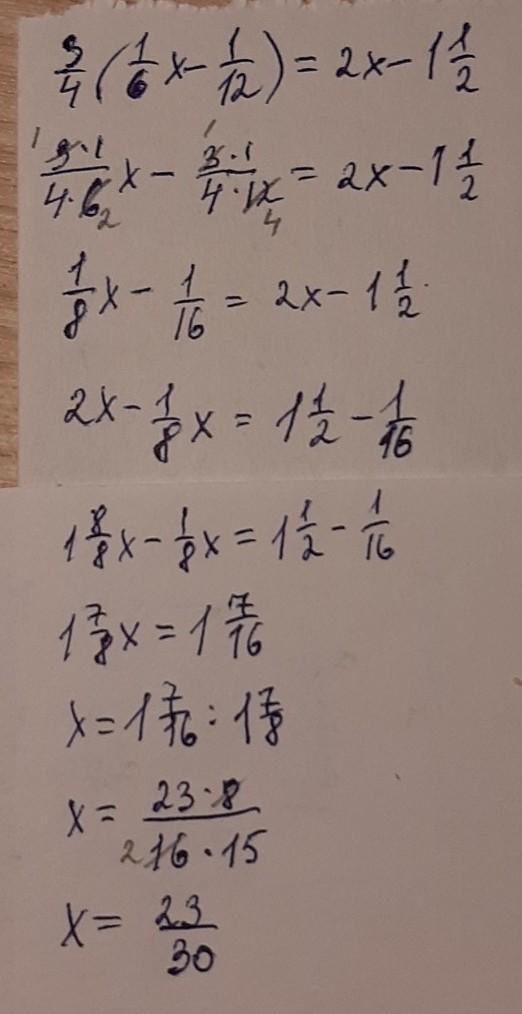 3/4(1/6x - 1/12) = 2x - 1 1/2
1 3·1/4·6 2 x - 1 3·1/4·12 4 = 2x - 1 1/2
1/8x - 1/16 = 2x - 1 1/2.
2x - 1/8x = 1 1/2 - 1/16
1 8/8x - 1/8x = 1 1/2 - 1/16
1 7/8x = 1 7/16
x = 1 7/16 : 1 7/8
x = 23·8/2 16·15
x = 23/30